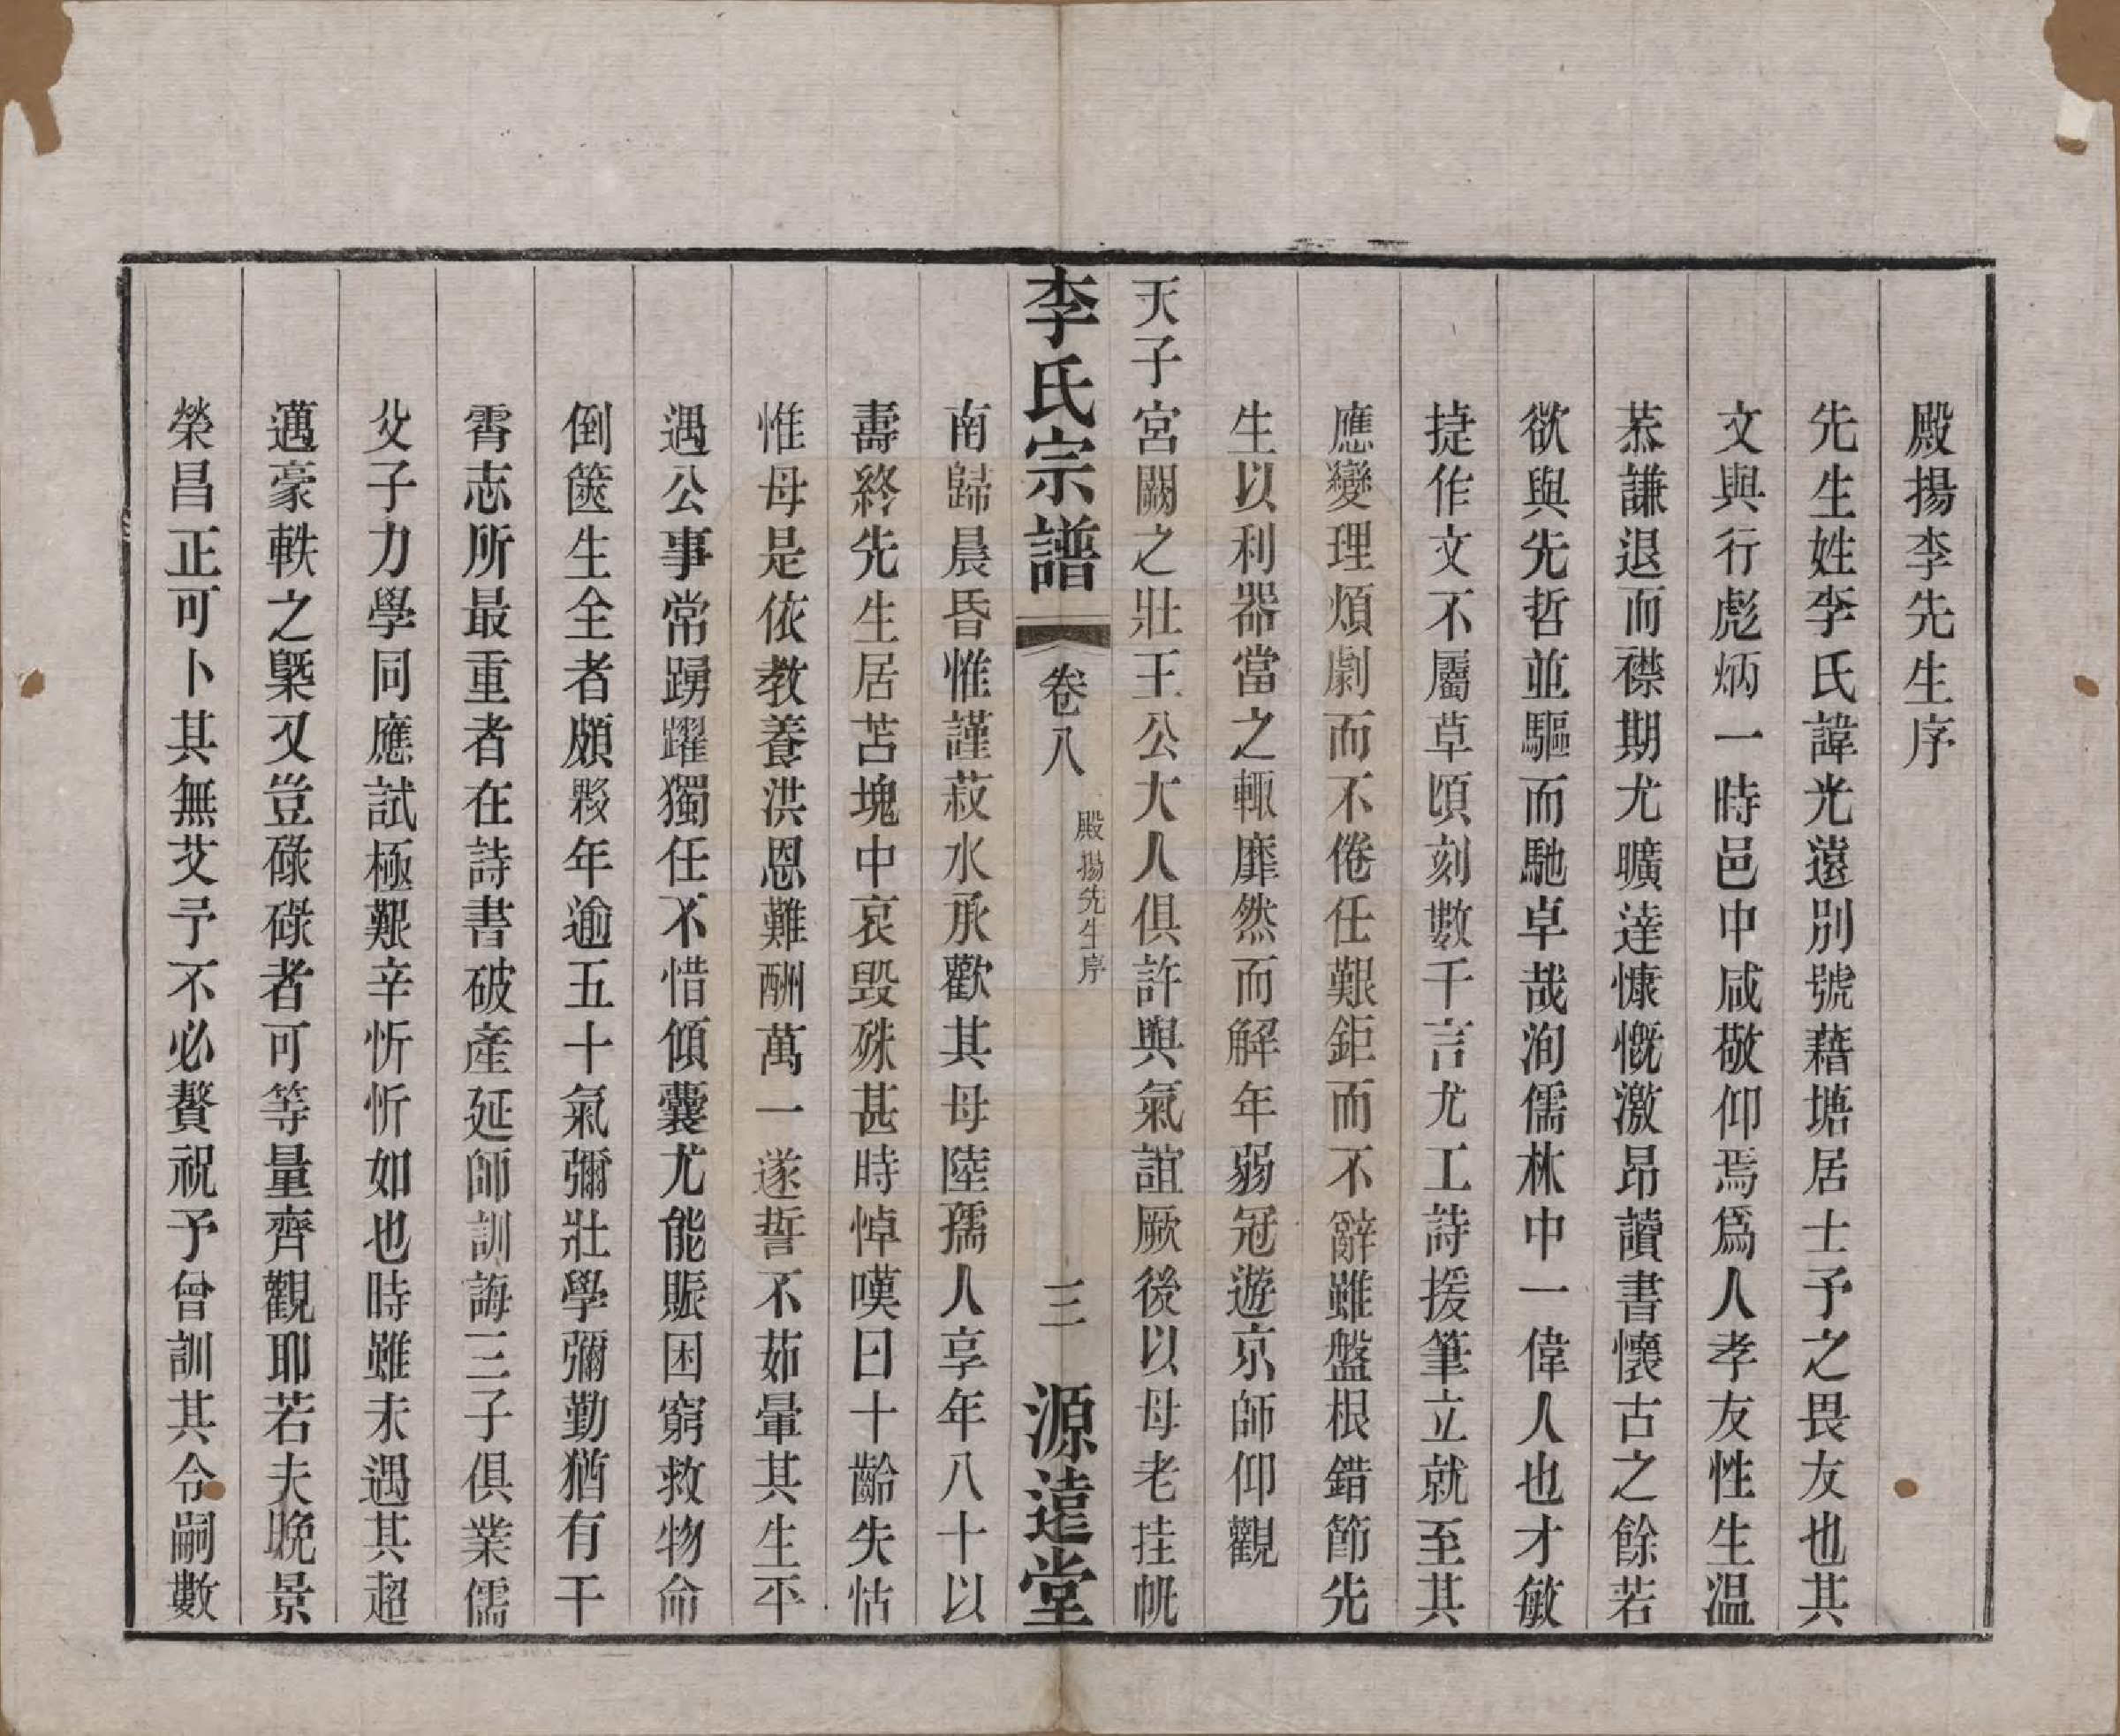 殿揚李先生序
先生姓李氏諱光遠別號藉塘居士予之畏友也其
文與行彪炳一時邑中咸敬仰焉爲人孝友性生温
恭謙退而襟期尤曠達慷慨激昂讀書懷古之餘若
欲與先哲並驅而馳卓哉洵儒林中一偉人也才敏
捷作文不屬草頃刻數千言尤工詩援筆立就至其
應變理煩劇而不倦任艱鉅而不辭雖盤根錯節先
生以利器當之輒靡然而解年弱冠遊京師仰觀
天子宮闕之壯王公大人俱許與氣誼厥後以母老挂帆
李氏宗譜 卷八 殿揚先生序 三 源遠堂
南歸晨昏惟謹菽水承歡其母陸孺人享年八十以
壽終先生居苫塊中哀毀殊甚時悼嘆曰十齡失怙
惟母是依教養洪恩難酬萬一遂誓不茹暈其生平
遇公事常踴躍獨任不惜傾囊尤能賑困窮救物命
倒篋生全者頗夥年逾五十氣彌壯學彌勤猶有干
霄志所最重者在詩書破產延師訓誨三子俱業儒
父子力學同應試極艱辛忻忻如也時雖未遇其超
邁豪軼之槩又豈碌碌者可等量齊觀耶若夫晚景
榮昌正可卜其無艾予不必贅祝予曾訓其令嗣數